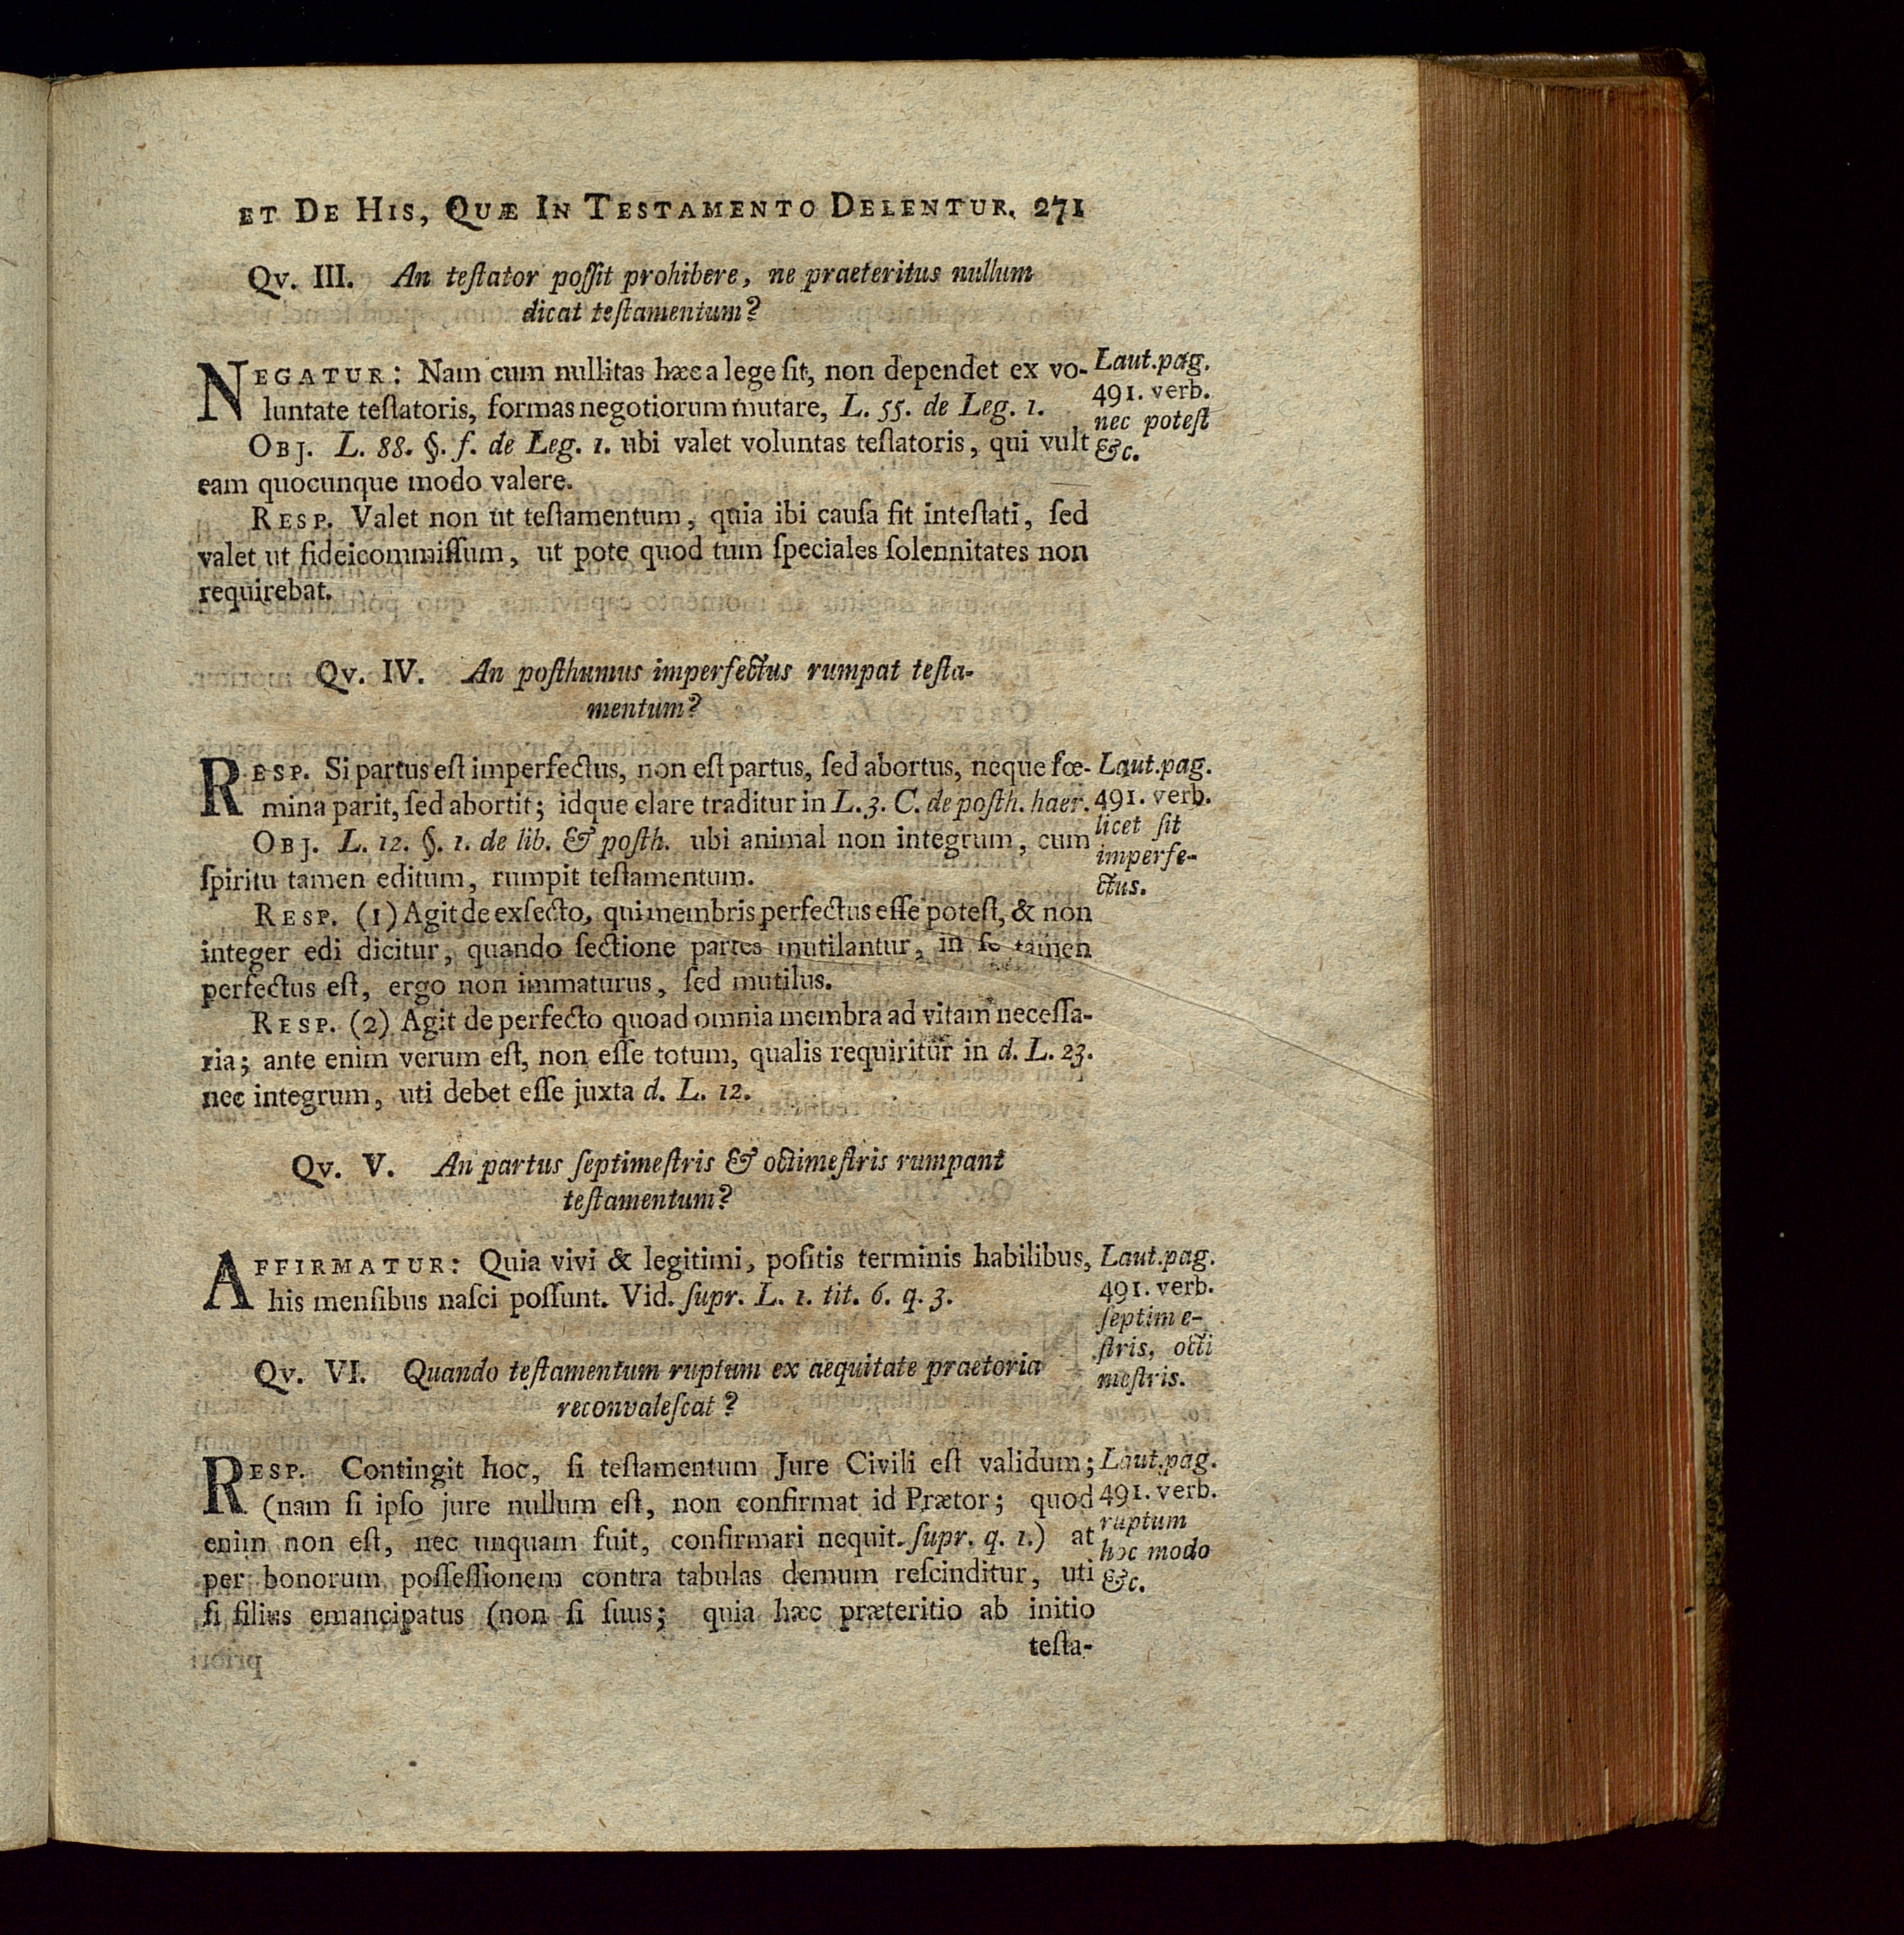 ET DE HIS, QUÆ IN TESTAMENTO DELENTUR. 271
Qv. III. An teſtator poſſit prohibere, ne praeteritus nullum
dicat teſtamentum?
NEGATUR: Nam cum nullitas hæc a lege ſit, non dependet ex vo-
luntate teſtatoris, formas negotiorum mutare, L. 55. de Leg. 1.
Laut. pag.
491. verb.
nec poteſt
&c.
OBJ. L. 88. §. f. de Leg. 1. ubi valet voluntas teſtatoris, qui vult
eam quocunque modo valere.
RESP. Valet non ut teſtamentum, quia ibi cauſa fit inteſtati, ſed
valet ut fideicommiſſum, ut pote quod tum ſpeciales ſolennitates non
requirebat.
Qv. IV. An poſthumus imperfectus rumpat teſta-
mentum?
RESP. Si partus eſt imperfectus, non eſt partus, ſed abortus, neque fœ-
mina parit, ſed abortit; idque clare traditur in L. 3. C. de poſth. haer.
Laut. pag.
491. verb.
licet ſit
imperfe-
ctus.
OBJ. L. 12. §. 1. de lib. & poſth. ubi animal non integrum, cum
ſpiritu tamen editum, rumpit teſtamentum.
RESP. (1) Agit de exſecto, qui membris perfectus eſſe poteſt, & non
integer edi dicitur, quando ſectione partes mutilantur, in ſe tamen
perfectus eſt, ergo non immaturus, ſed mutilus.
RESP. (2) Agit de perfecto quoad omnia membra ad vitam neceſſa-
ria; ante enim verum eſt, non eſſe totum, qualis requiritur in d. L. 23.
nec integrum, uti debet eſſe juxta d. L. 12.
Qv. V. An partus ſeptimeſtris & octimeſtris rumpant
teſtamentum?
AFFIRMATUR: Quia vivi & legitimi, poſitis terminis habilibus,
his menſibus naſci poſſunt. Vid. ſupr. L. 1. tit. 6. q. 3.
Laut. pag.
491. verb.
ſeptime-
ſtris, octi
meſtris.
Qv. VI. Quando teſtamentum ruptum ex aequitate praetoria
reconvaleſcat?
RESP. Contingit hoc, ſi teſtamentum Jure Civili eſt validum;
(nam ſi ipſo jure nullum eſt, non confirmat id Prætor; quod
enim non eſt, nec unquam fuit, confirmari nequit. ſupr. q. 1.) at
per bonorum poſſeſſionem contra tabulas demum reſcinditur, uti
ſi filius emancipatus (non ſi ſuus; quia hæc præteritio ab initio
Laut. pag.
491. verb.
ruptum
hoc modo
&c.
teſta-